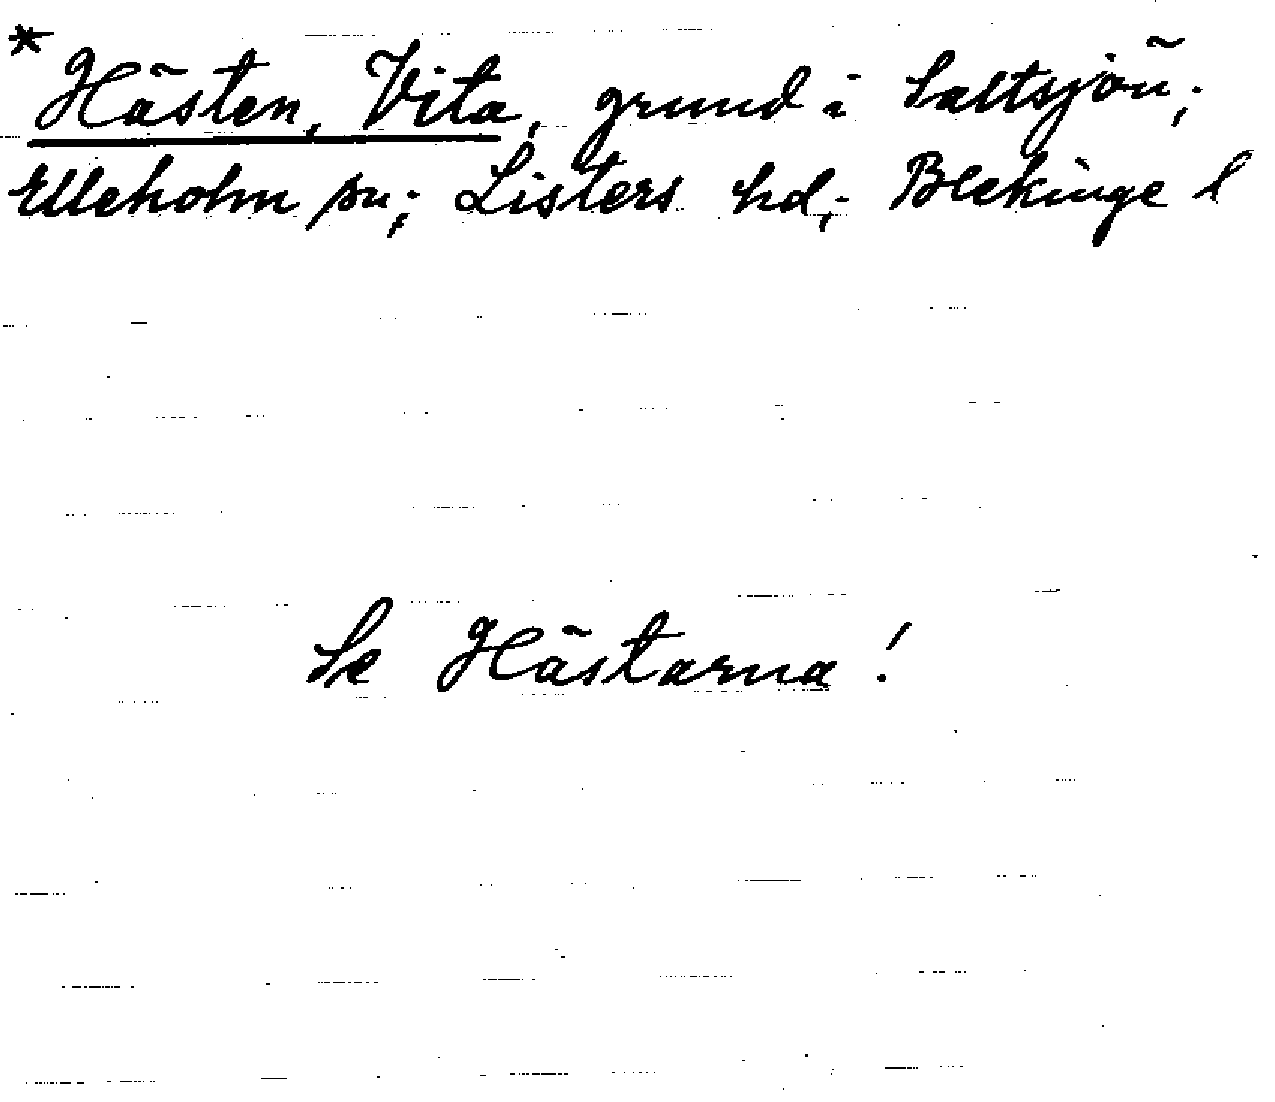 * Hästen, Vita, grund i Saltsjön;
Elleholm sn; Listers hd; Blekinge l
Se Hästarna!